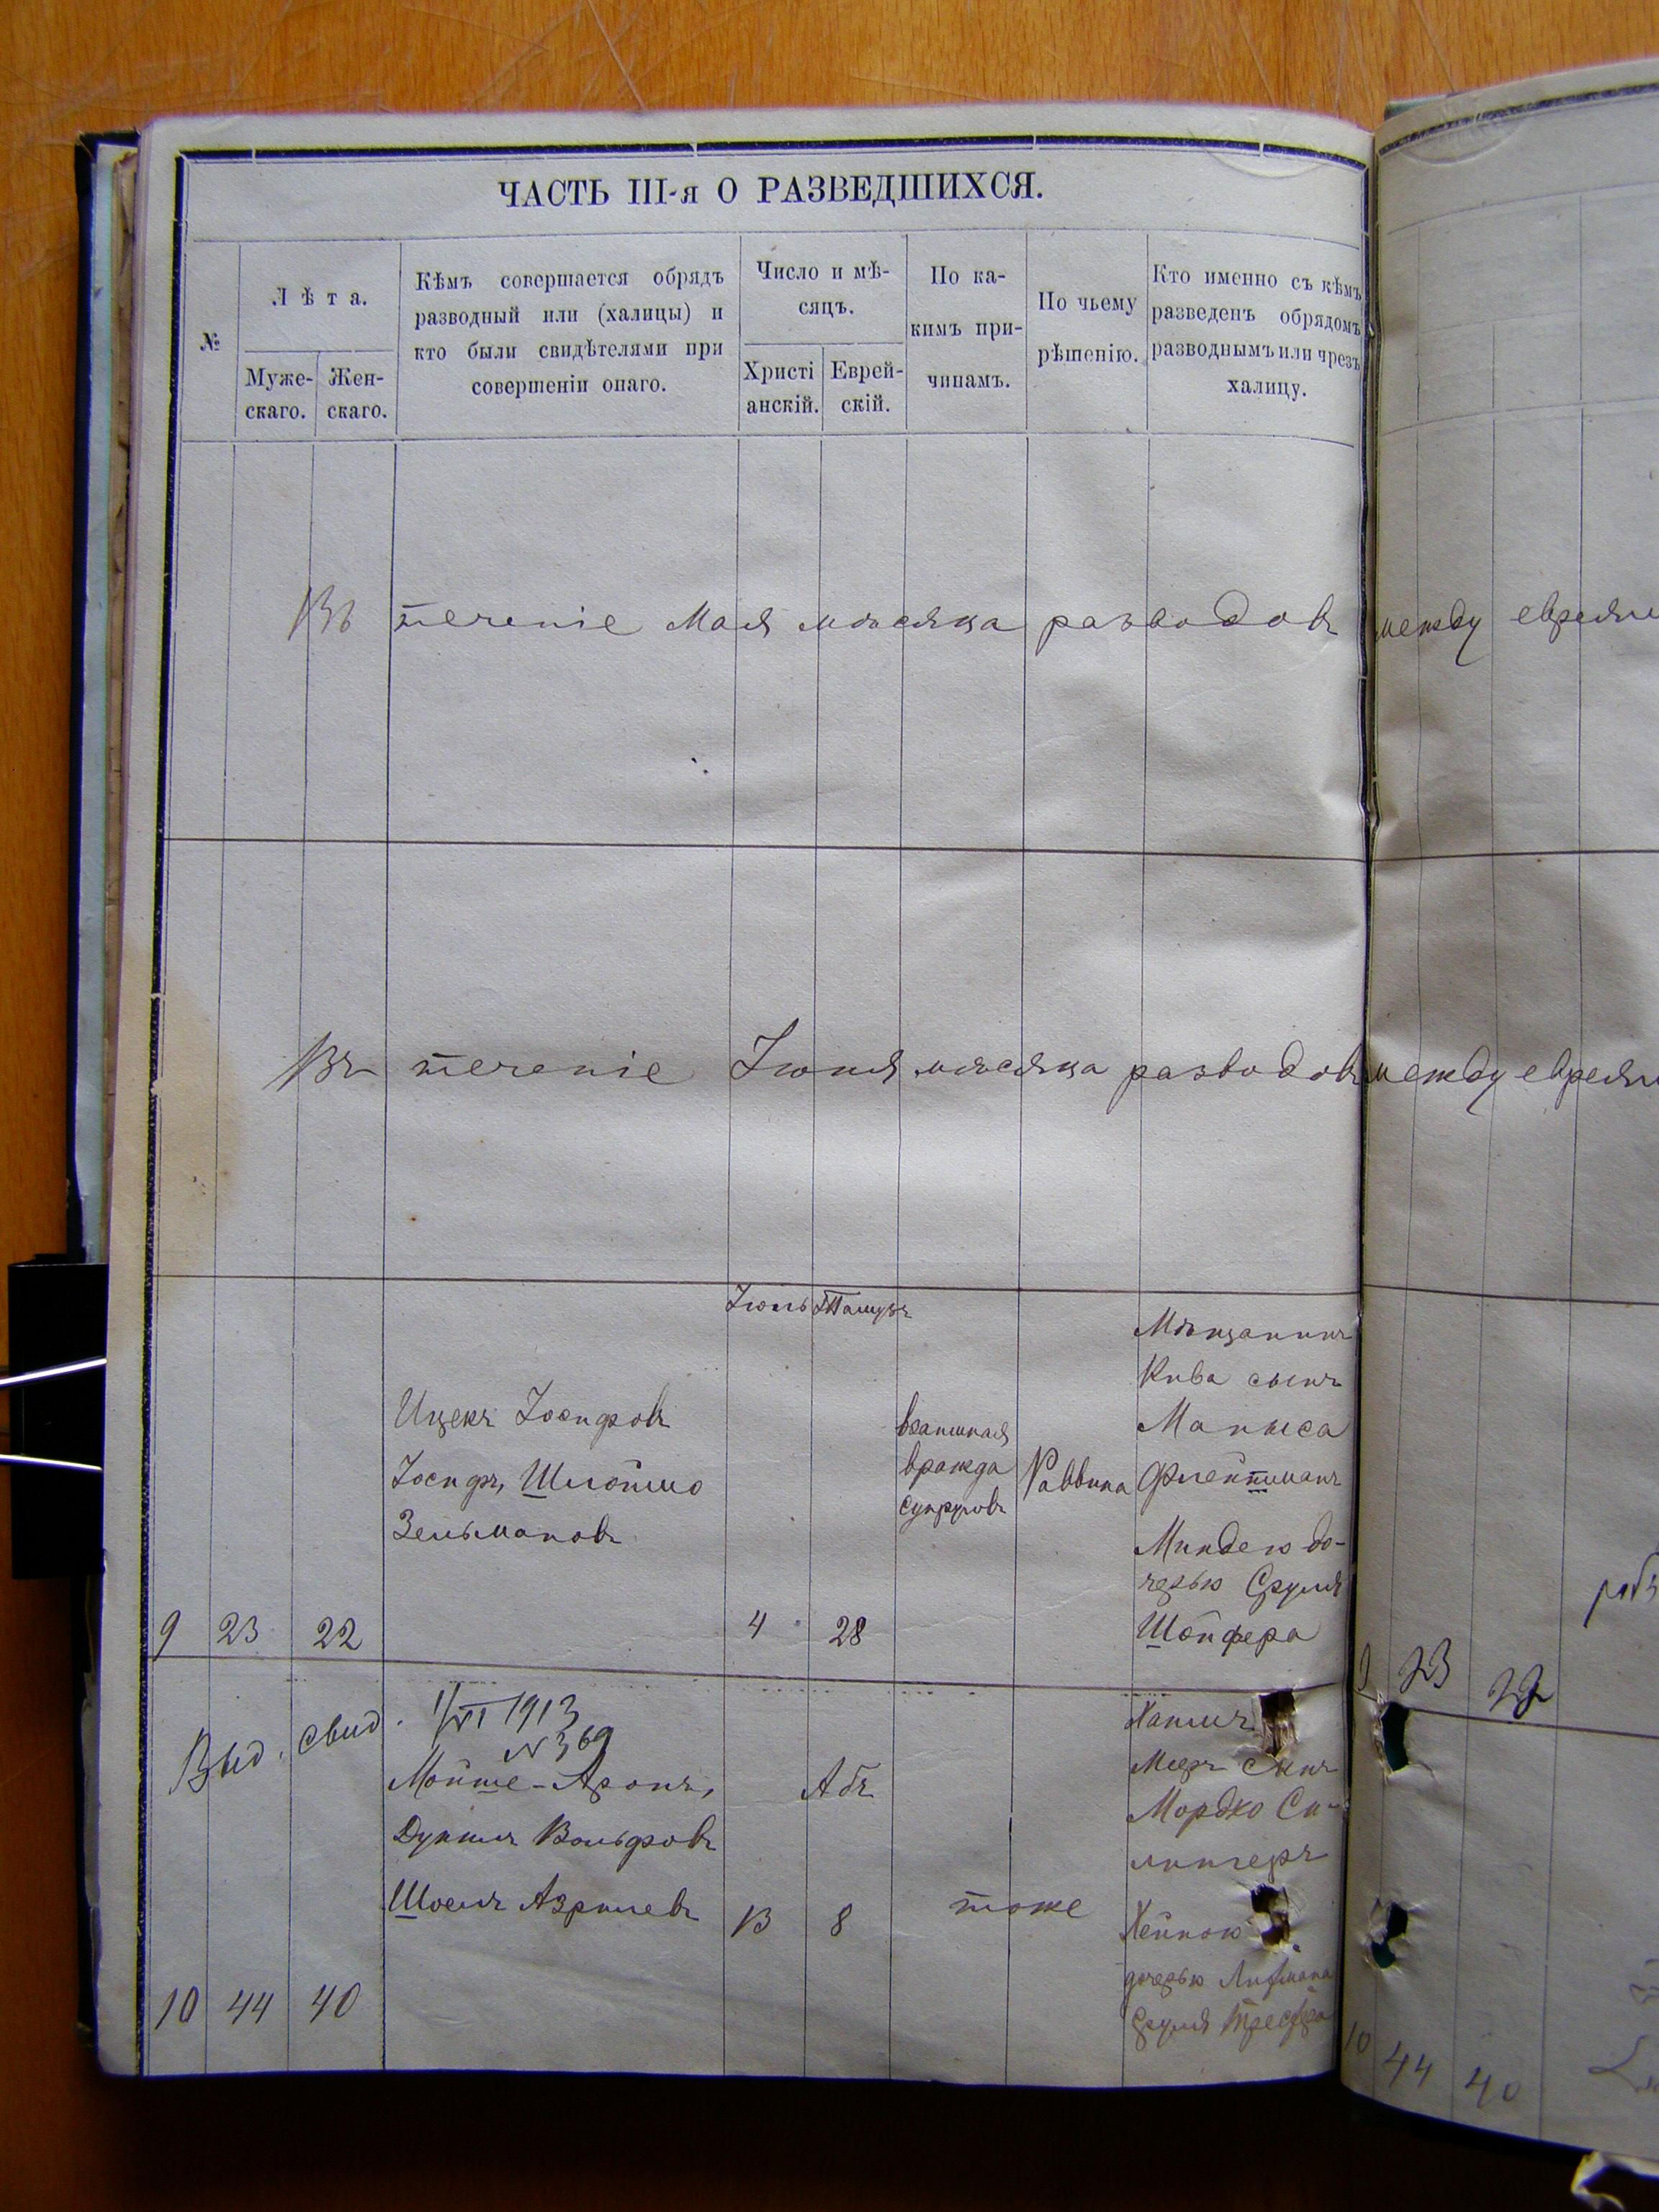 ЧАСТЬ III-я О РАЗВЕДШИХСЯ.
№
Лѣта.
Муже-
скаго.
Жен-
скаго.
Кѣмъ совершается обрядъ
разводный или (халицы) и
кто были свидѣтелями при
совершеніи онаго.
Число и мѣ-
сяцъ.
Христі
анскій.
Еврей-
скій.
По ка-
кимъ при-
чинамъ.
По чьему
рѣшенію.
Кто именно съ кѣмъ
разведенъ обрядомъ
разводнымъ или чрезъ
халицу.
Въ теченіе Мая мѣсяца разводовъ между
Въ теченіе Іюня мѣсяца разводовъ между
9 23 22
Ицекъ Іосифовъ
Іосифъ, Шлоймо
Зельмановъ
Іюль
4
Тамузъ
28
взаимная
вражда
супруговъ
Раввина
Мѣщанинъ
Кива сынъ
Маныса
Флейтманъ
Миндею до-
черью Сруля
Шойфера
9 23 22
Выд. свид. 1/VI 1913
N 369
10 44 40
Мойше-Аронъ,
Вольфовъ
Шоелъ Азрилевъ
13
Абъ
8
тоже
Мееръ сынъ
Мордко Си-
лингеръ
Хейною
дочерью Лифмана
Сруля
10 44 40